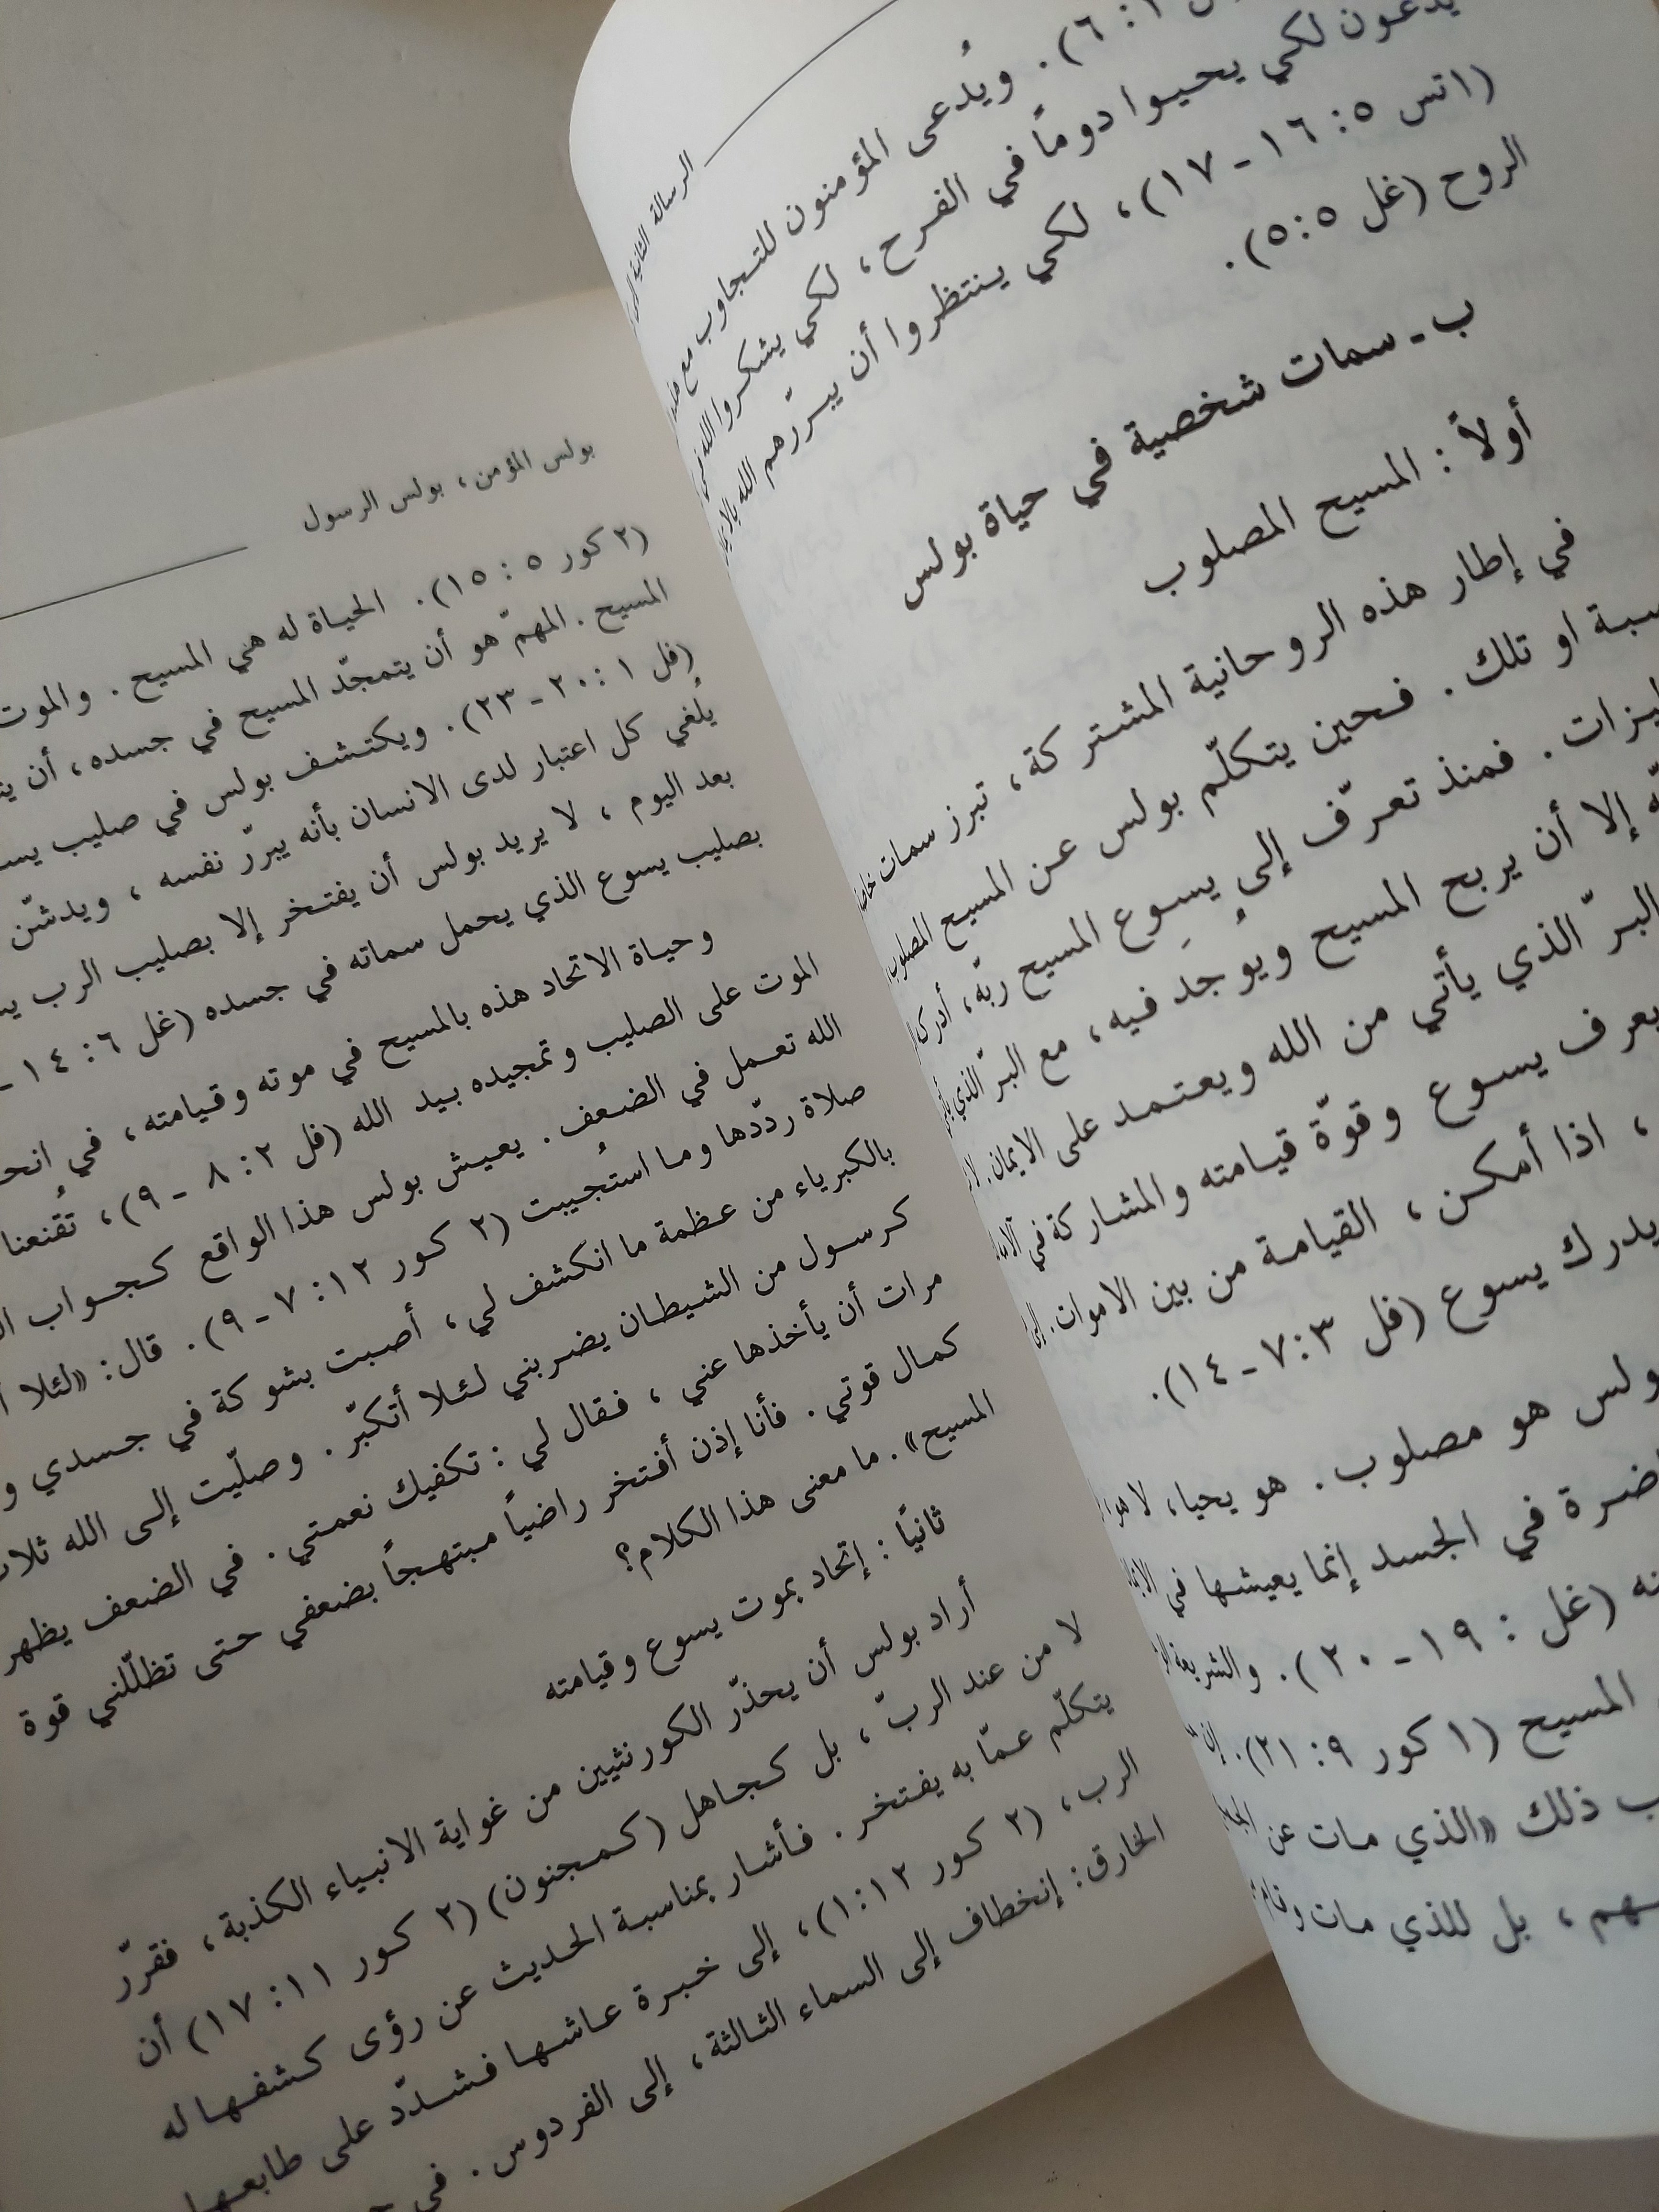 الرسالة الثانية
٦). ويُدعى المؤمنون للتجاوب مع
يدعون لكي يحيوا دوماً في الفرح، لكي يشكروا الله
(١تس ٥: ١٦ـ١٧)، لكي ينتظروا أن يبرّرهم الله
الروح (غل ٥:٥).
ب ـ سمات شخصية في حياة بولس
أولاً: المسيح المصلوب
في إطار هذه الروحانية المشتركة، تبرز سمات
او تلك. فحين يتكلّم بولس عن المسيح المصلوب
فمنذ تعرّف إلى يسوع المسيح ربّه،
إلا أن يربح المسيح ويوجد فيه، مع البرّ الذي
البرّ الذي يأتي من الله ويعتمد على الايمان.
يعرف يسوع وقوّة قيامته والمشاركة في
، اذا أمكن، القيامة من بين الاموات.
يدرك يسوع (فل ٣:٧ـ١٤).
هو مصلوب. هو يحيا، لا
في الجسد إنما يعيشها في
(غل : ١٩ـ٢٠). والشريعة
المسيح (١ كور ٩: ٢١).
ذلك «الذي مات عن
، بل للذي مات
بولس المؤمن، بولس الرسول
(٢ كور ٥: ١٥). الحياة له هي المسيح. والموت
المسيح. المهمّ هو أن يتمجّد المسيح في جسده، أن
(فل ١: ٢٠ـ٢٣). ويكتشف بولس في صليب
يُلغي كل اعتبار لدى الانسان بأنه يبرّر نفسه، ويدشّن
بعد اليوم، لا يريد بولس أن يفتخر إلا بصليب الرب
بصليب يسوع الذي يحمل سماته في جسده (غل ٦: ١٤ـ
وحياة الاتحاد هذه بالمسيح في موته وقيامته، في
الموت على الصليب وتمجيده بيد الله (فل ٢: ٨ـ٩)، تُقنعنا
الله تعمل في الضعف. يعيش بولس هذا الواقع كجواب
صلاة ردّدها وما استُجيبت (٢ كور ١٢: ٧ـ٩). قال: «لئلا
بالكبرياء من عظمة ما انكشف لي، أصبت بشوكة في جسدي
كرسول من الشيطان يضربني لئلا أتكبّر. وصلّيت إلى الله
مرات أن يأخذها عني، فقال لي: تكفيك نعمتي. في الضعف يظهر
كمال قوتي. فأنا إذن أفتخر راضياً مبتهجاً بضعفي حتى تظلّلني قوة
المسيح». ما معنى هذا الكلام؟
ثانياً: إتحاد بموت يسوع وقيامته
أراد بولس أن يحذّر الكورنثيين من غواية الانبياء الكذبة، فقرّر
لا من عند الربّ، بل كجاهل (كمجنون) (٢ كور ١١: ١٧) أن
يتكلّم عمّا به يفتخر. فأشار بمناسبة الحديث عن رؤى كشفها له
الرب، (٢ كور ١٢: ١)، إلى خبرة عاشها فشدّد على طابعها
الخارق: إنخطاف إلى السماء الثالثة، إلى الفردوس. في